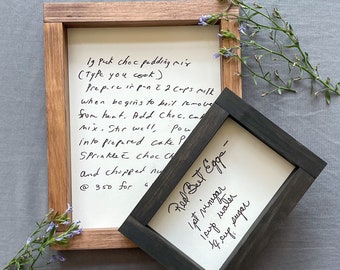 1 g pack choc pudding mix
(Type you cook)
Prepare in pan E 2 cups milk
when begins to boil remove
from heat. Add Choc. cake
mix. Stir well, Pou
into prepared cake P
SprinkleE choc Ch
and chopped nu
@ 350 for
Red Beet Eggs -
1 pt vinegar
1 cup water
3/4 cup sugar